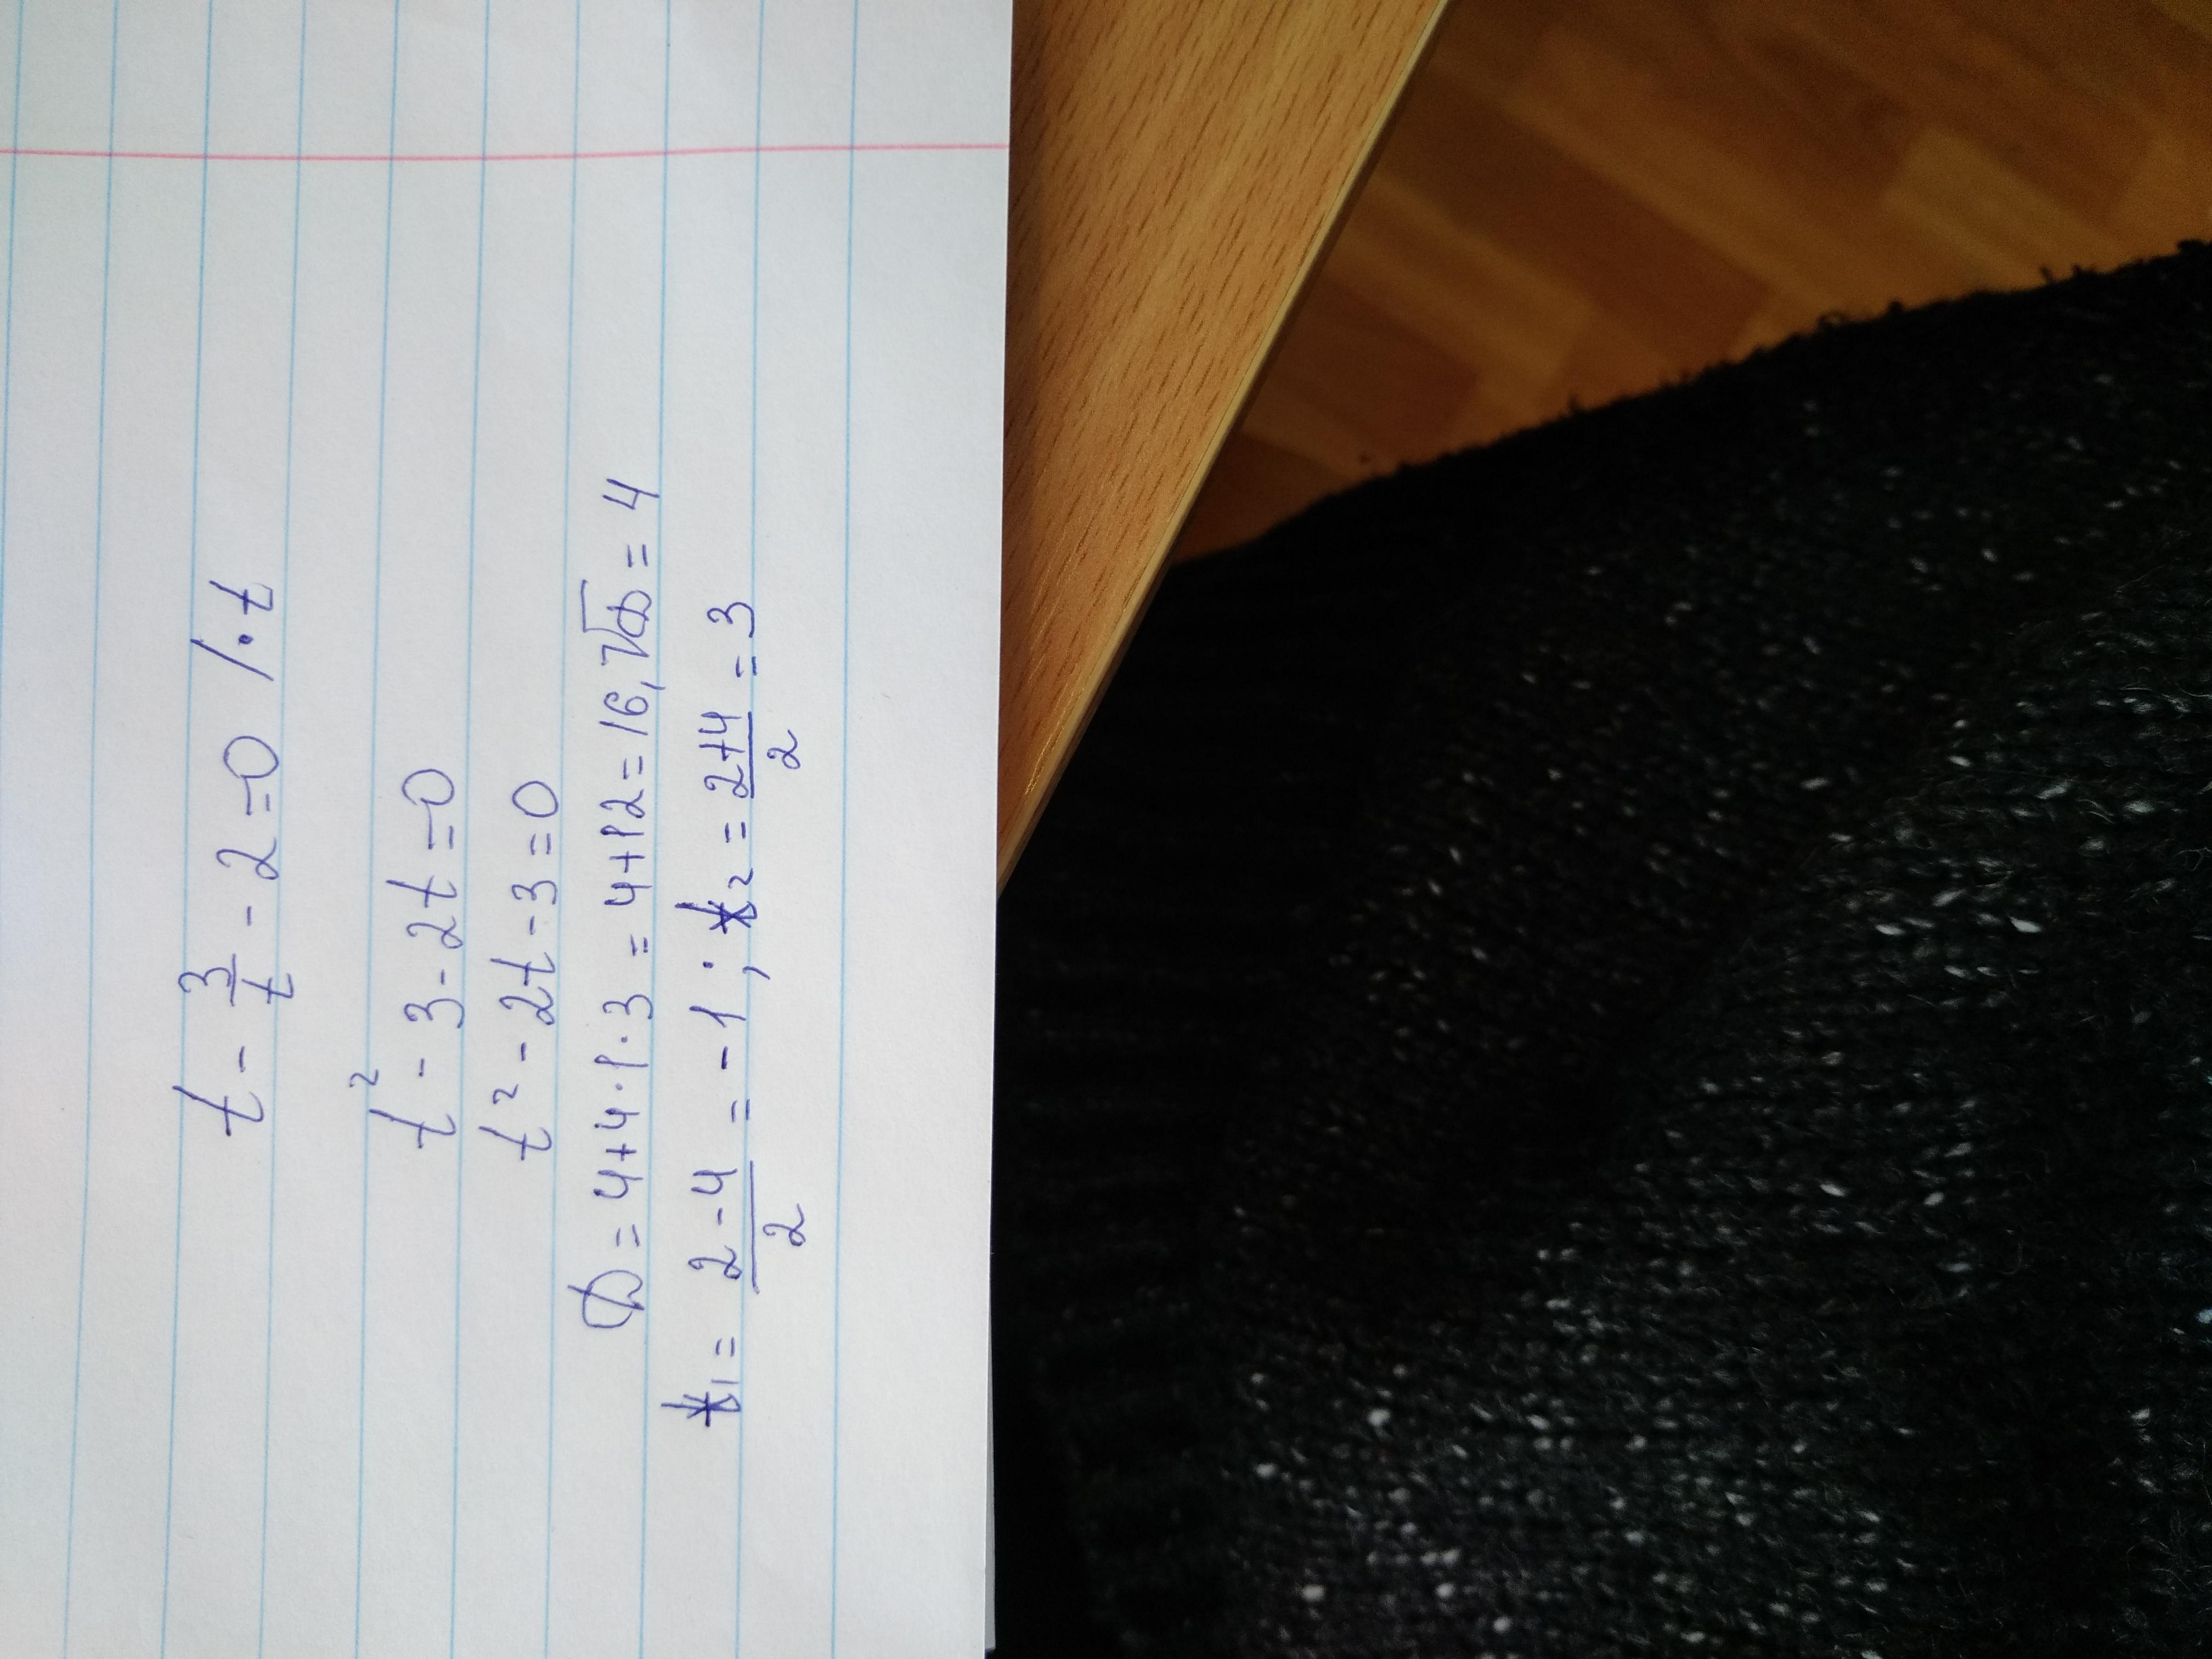 t - 3/t - 2 = 0 / · t
t² - 3 - 2t = 0
t² - 2t - 3 = 0
D = 4 + 4 · 1 · 3 = 4 + 12 = 16, √D = 4
t₁ = (2 - 4)/2 = -1 ; t₂ = (2 + 4)/2 = 3